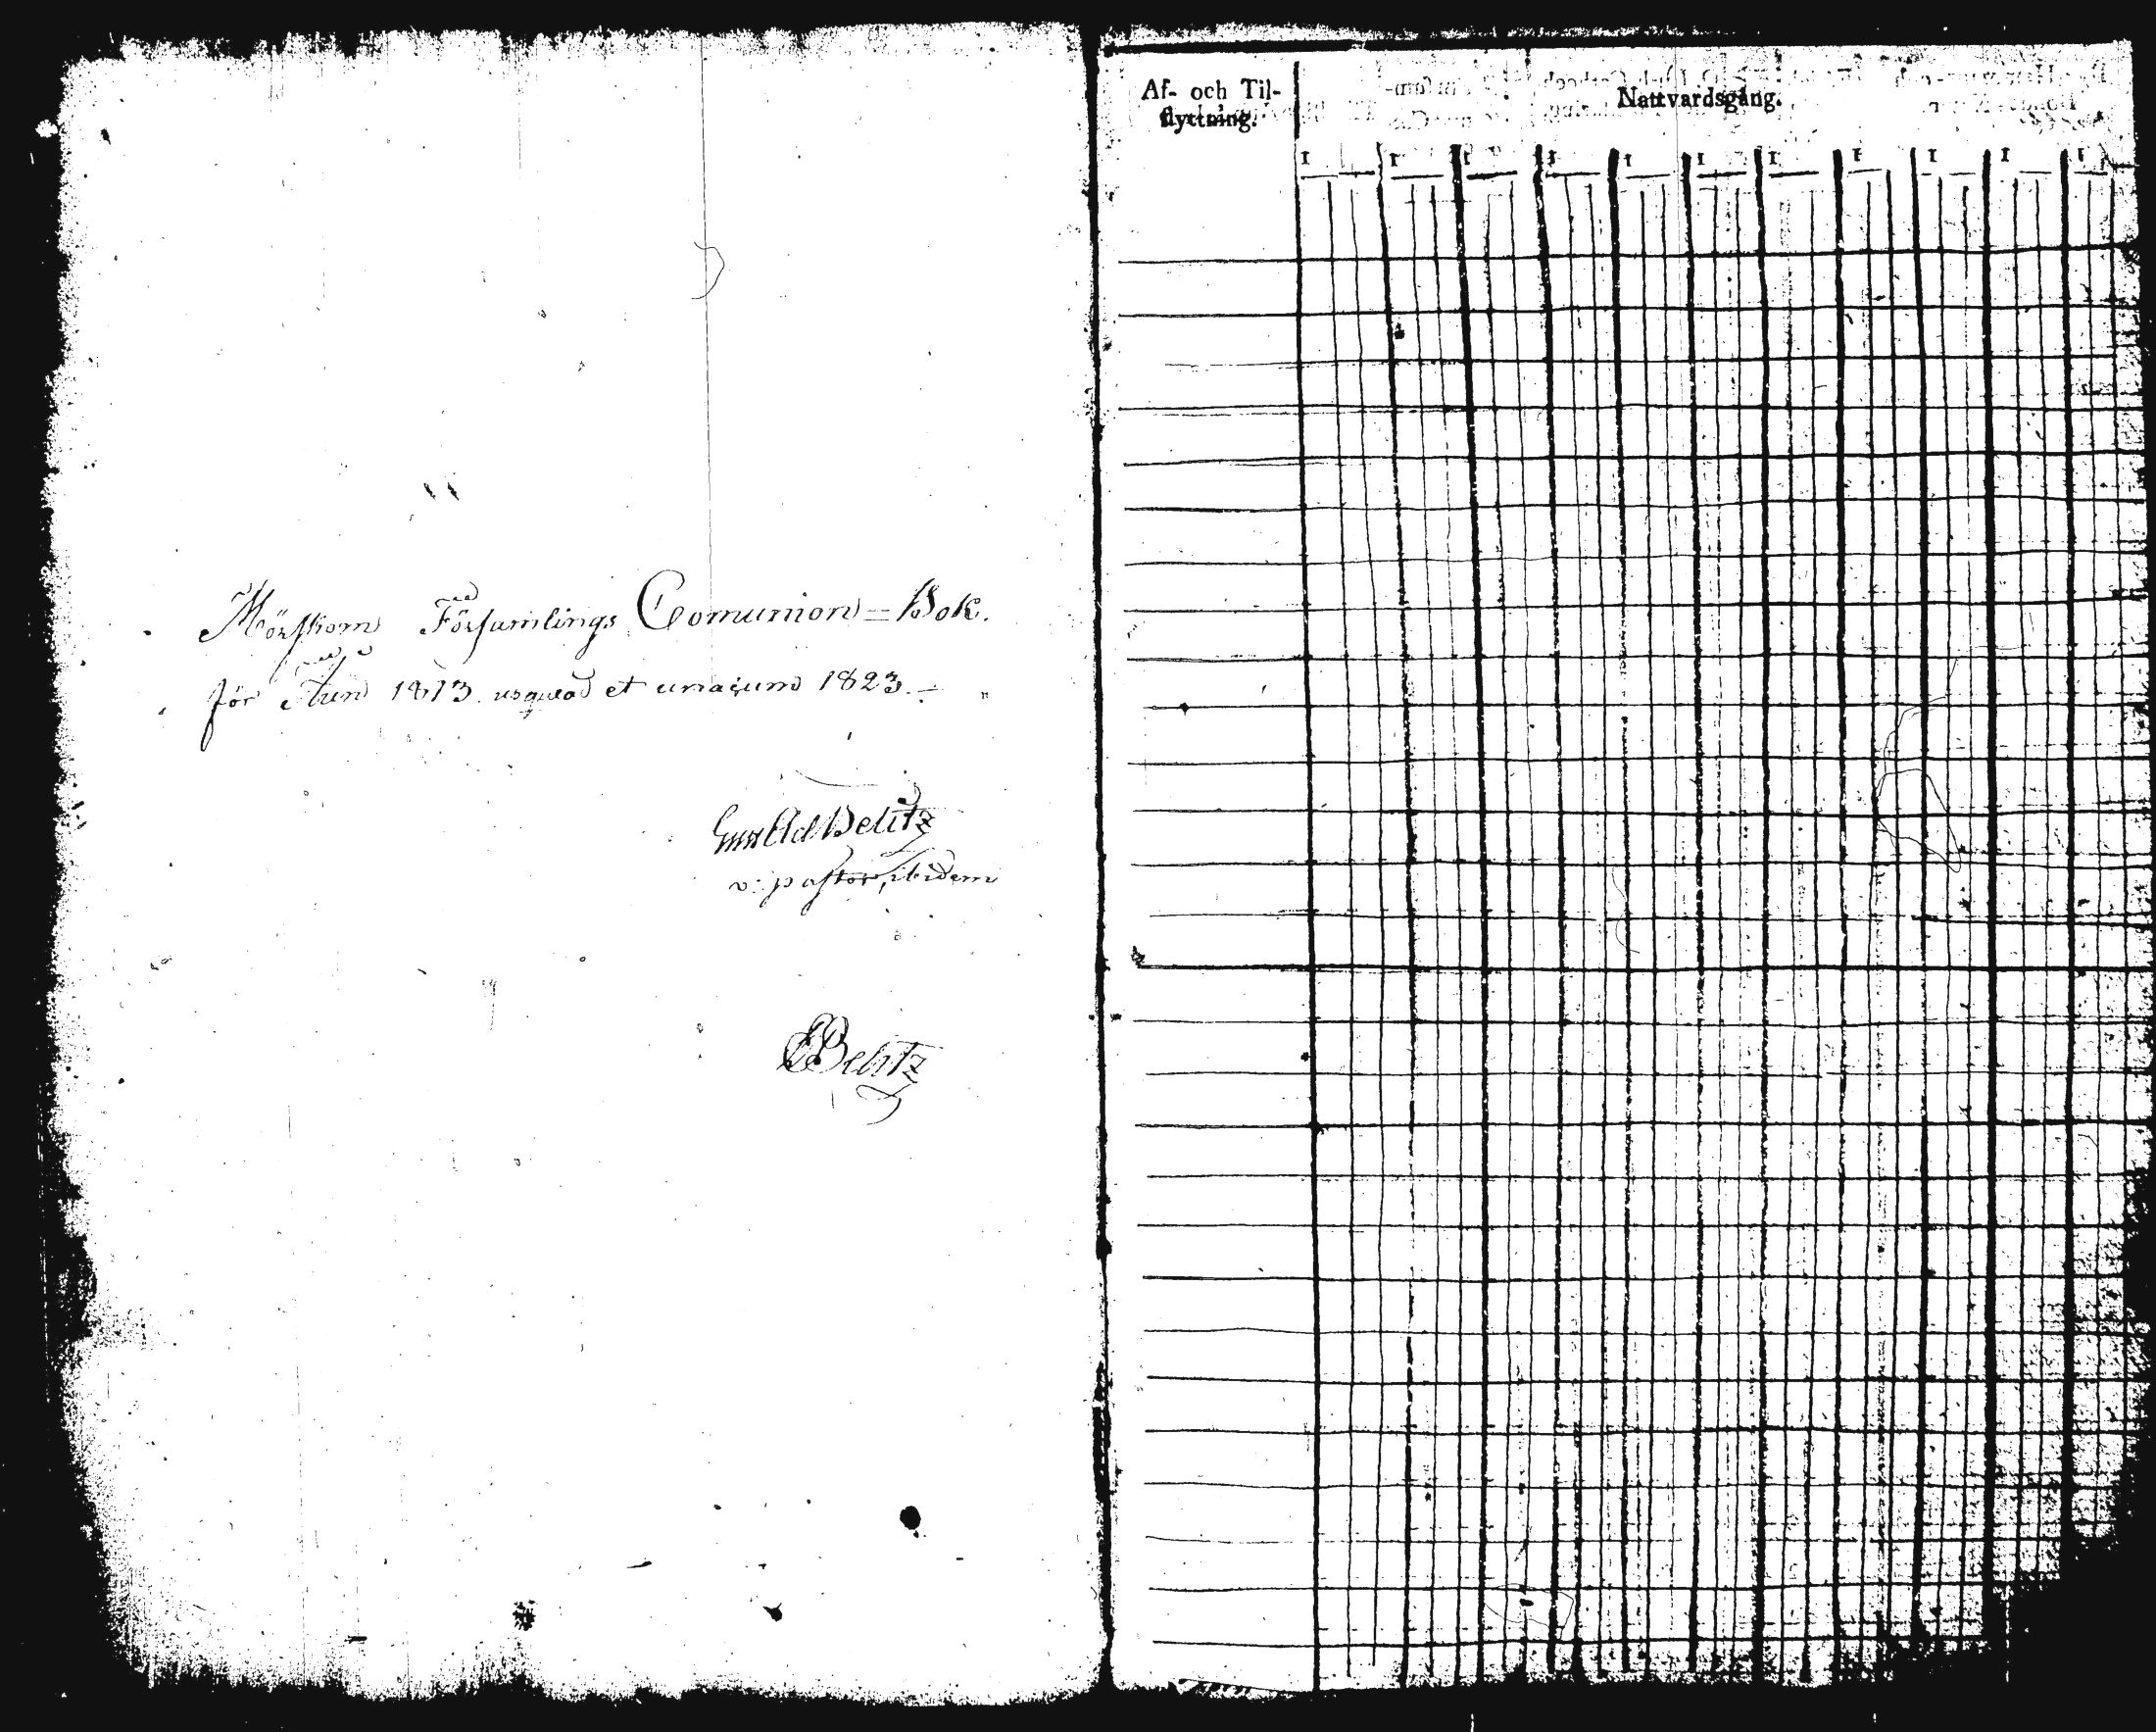 Mörskom Församlings Comunion=Bok.
för Åren 1813. usquead et 1823.
Belitz
v: pastor, ibidem
Belitz
Af- och Til-
flyttning.
Nattvardsgång.
1 1 1 1 1 1 1 1 1 1 1